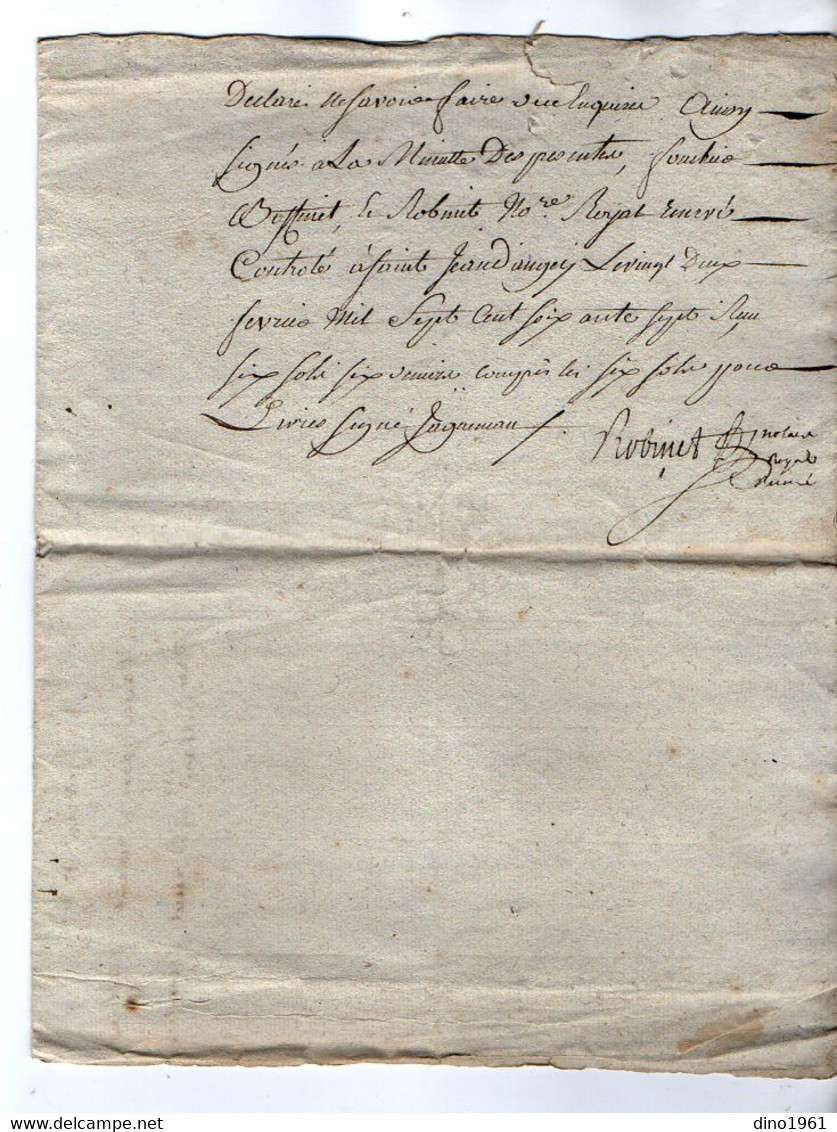 Declaré ne savoir faire de ce Enquise Ainsy
signés à La Minutte Des presentes,
et Robinet No.re Royal reservé
Controlé à saint Jean d'angely Le vingt Deux
fevrier Mil Sept Cent soixante sept Reçu
six sols six deniers compris les six sols pour
Livres signé
Robinet notaire
Royal
reservé
dino1961